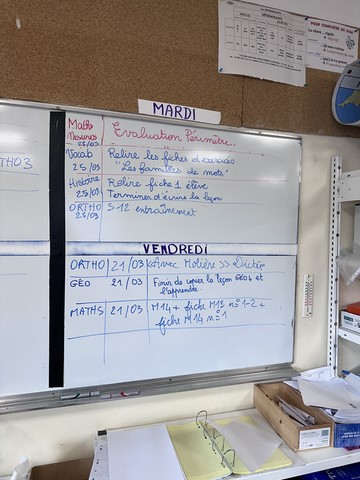 MARDI
Maths
Mesures
25/03
Evaluation Périmètre.
Vocab
25/03
Relire les fiches d'exercices
"Les familles de mots"
Histoire
25/03
Relire fiche 1 élève
Terminer d'écrire la leçon
ORTHO
25/03
S12 entraînement
THO3
VENDREDI
ORTHO 21/03 «Avec Molière >> Dictée
GÉO 21/03 Finir de copier la leçon GÉO4 et
l'apprendre.
MATHS 21/03 M14+ fiche M13 n° 1-2 +
fiche M14 n°1